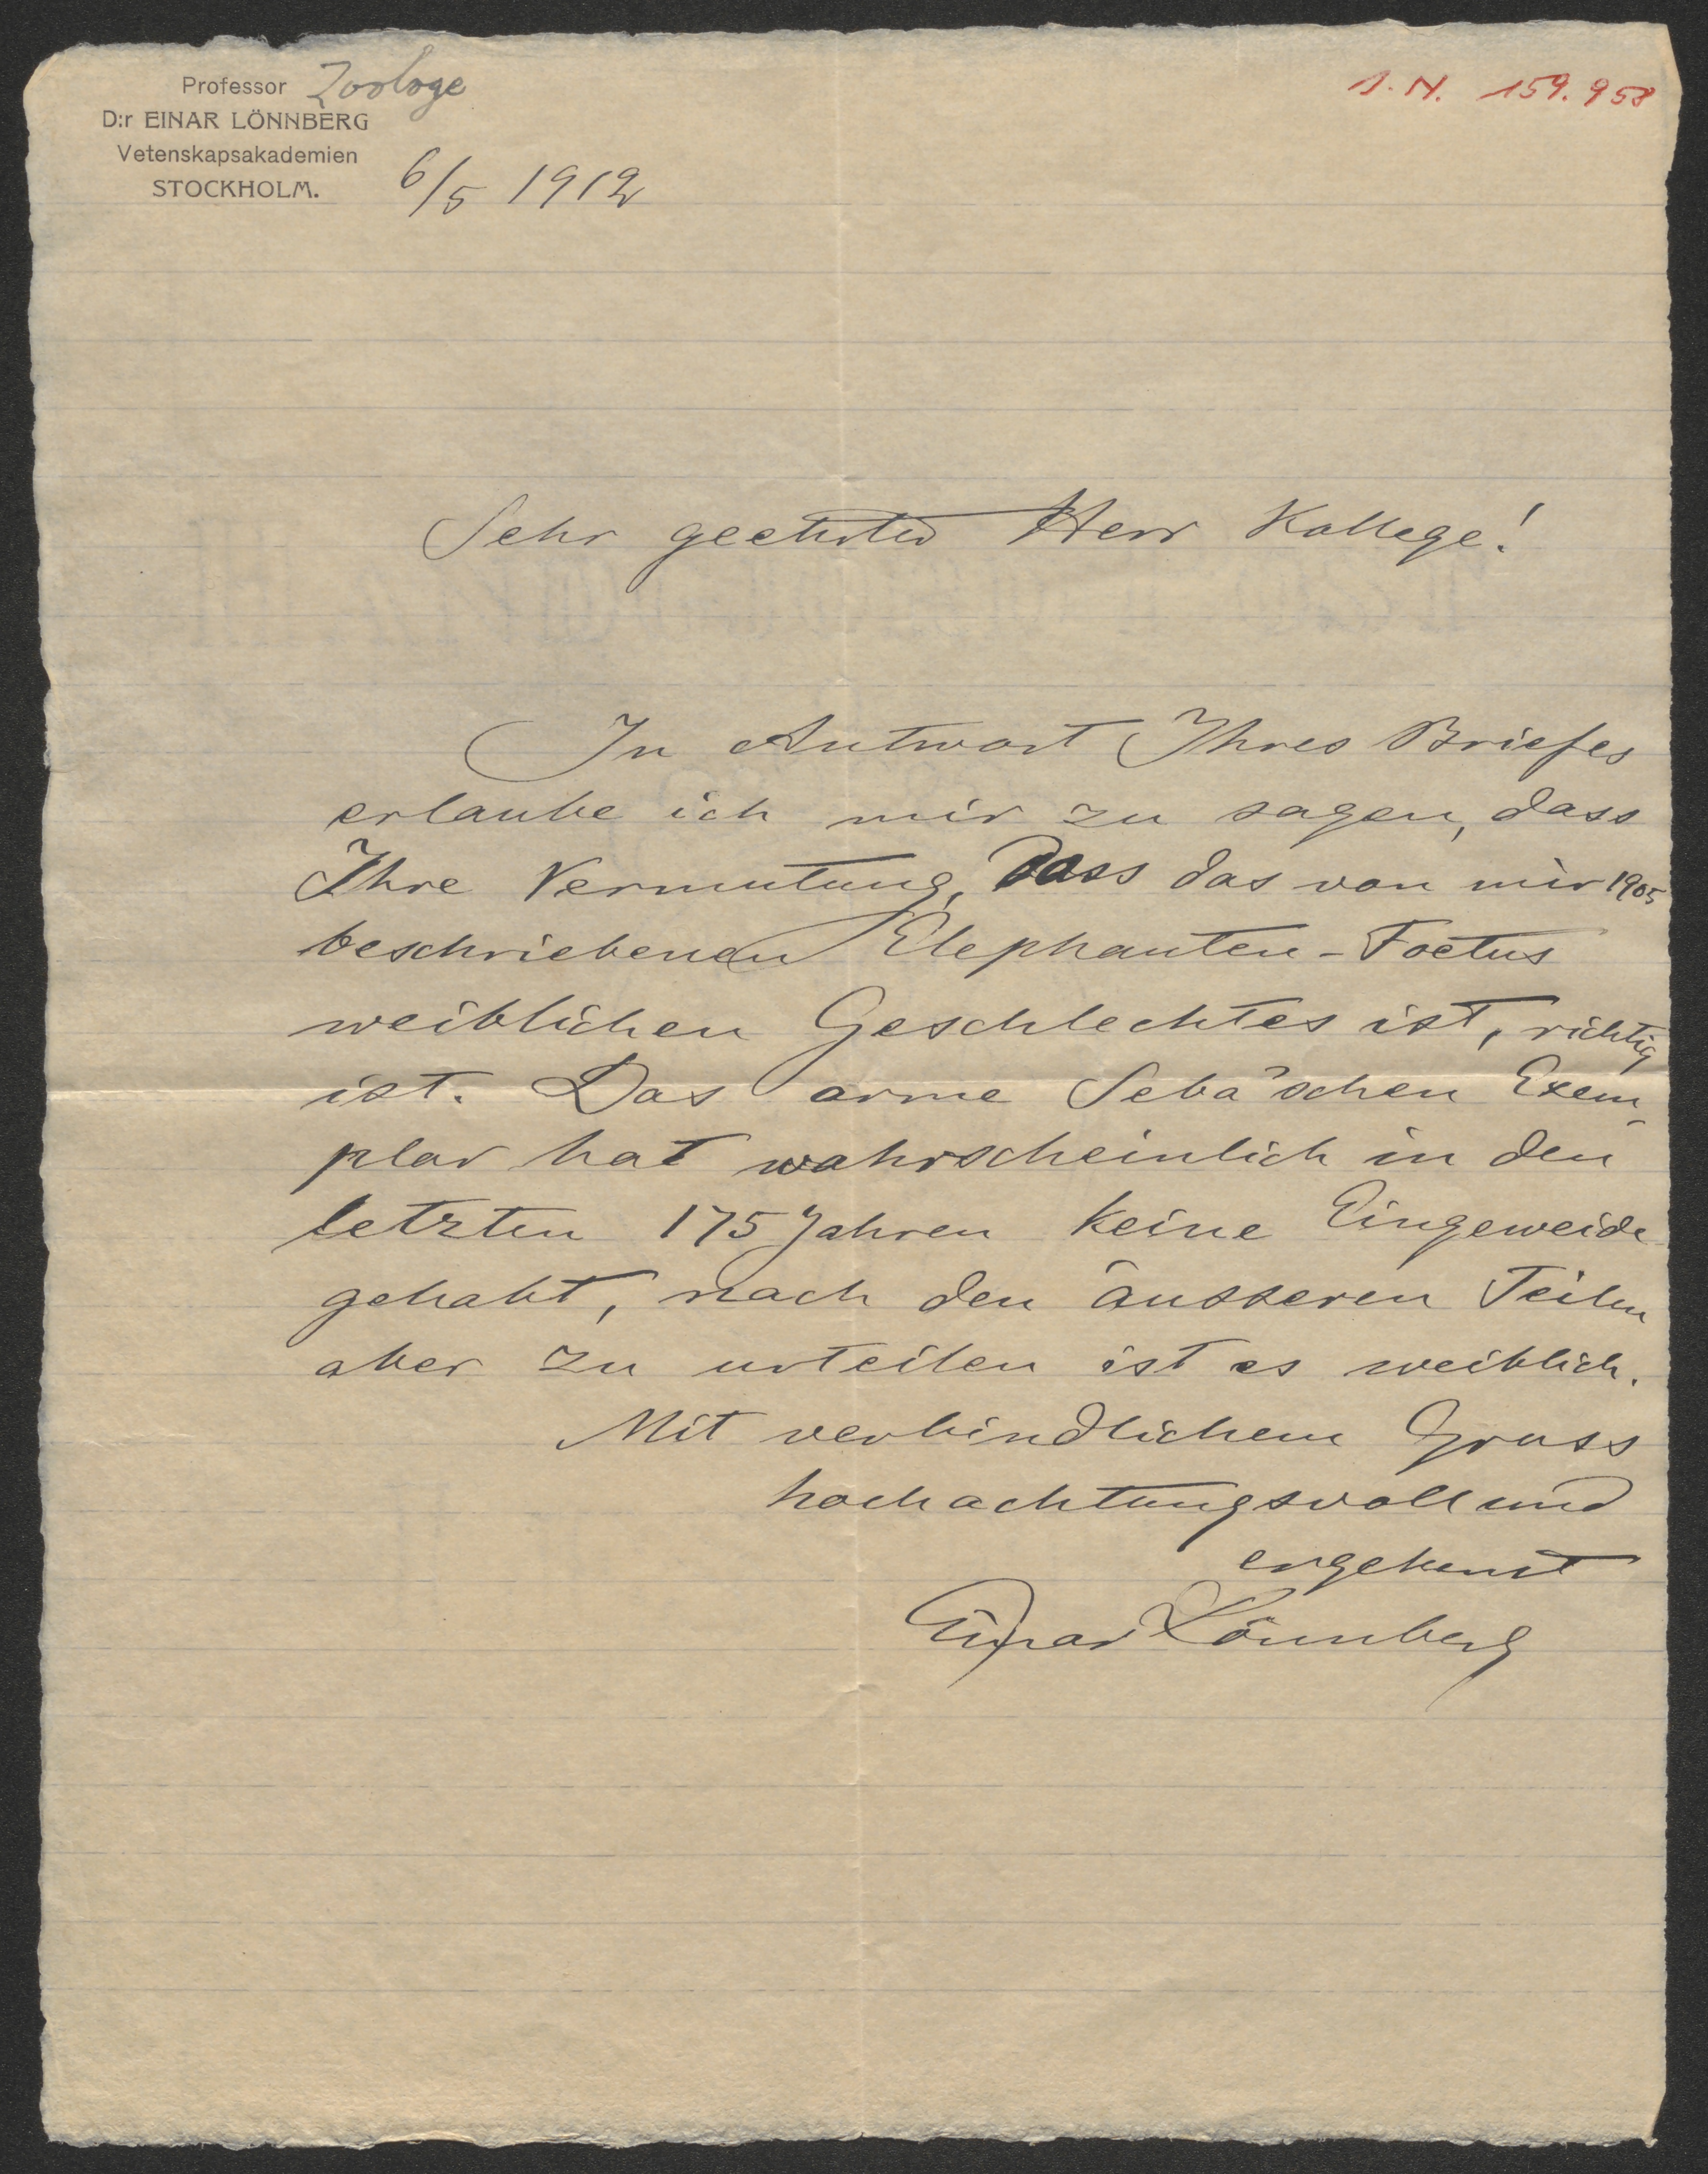 Professor Zoologe
D:r EINAR LÖNNBERG
Vetenskapsakademien
STOCKHOLM.
6/5 1912
J. N. 159.958
Sehr geehrter Herr Kollege!
In Antwort Ihres Briefes
erlaube ich mir zu sagen, dass
Ihre Vermutung, dass das von mir 1905
beschriebenen Elephanten-Foetus
weiblichen Geschlechtes ist, richtig
ist. Das arme Seba'schen Exem-
plar hat wahrscheinlich in den
letzten 175 Jahren keine Eingeweide
gehabt, nach den äusseren Teilen
aber zu urteilen ist es weiblich.
Mit verbindlichem Gruss
hochachtungsvoll und
ergebenst
Einar Lönnberg